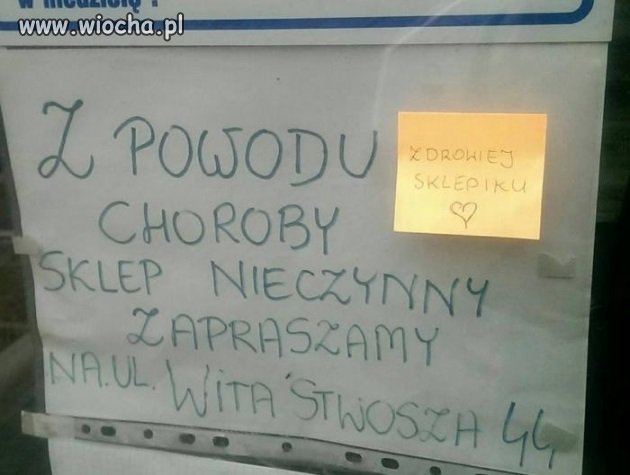 w niedzielę!
www.wiocha.pl
Z POWODU
CHOROBY
SKLEP NIECZYNNY
ZAPRASZAMY
NA.UL. WITA STWOSZA 44
ZDROWIEJ
SKLEPIKU
♡